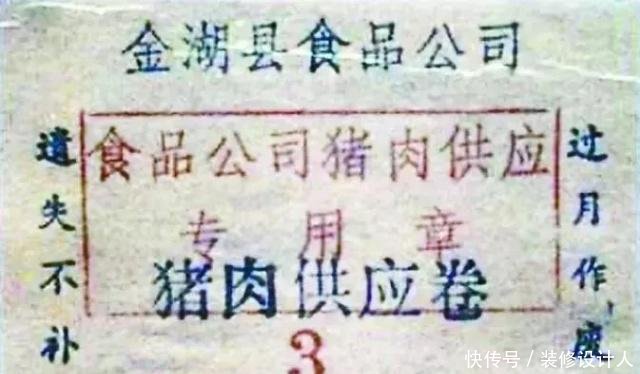 金湖县食品公司
食品公司猪肉供应
专用章
猪肉供应卷
3
遗失不补
过月作废
快传号/装修设计人